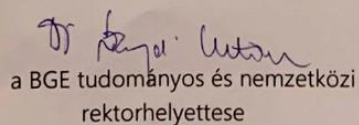 Dr
a BGE tudományos és nemzetközi
rektorhelyettese